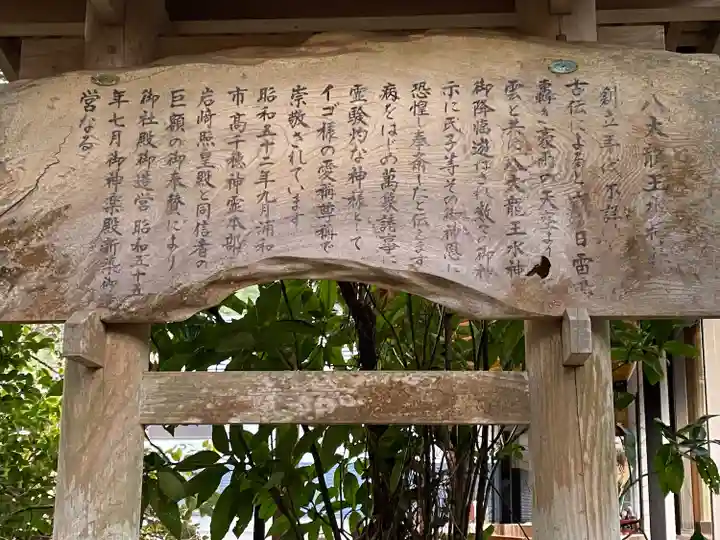 八大龍王水神
創立年代不詳
古伝によると 日雷鳴
轟き豪雨の天空より
雲と共に八大龍王水神
御降臨遊ばされ数々の御神
示に氏子等その御神恩に
恐惶し奉斎したと伝えます
病をはじめ萬衆諸事に
霊験灼な神様として
イゴ様の愛称尊称で
崇敬されています
昭和五十二年九月浦和
市高千穂神霊本部
岩崎照皇殿と同信者の
巨額の御奉賛により
御社殿御造営昭和五十五
年七月御神楽殿新築御
営なる